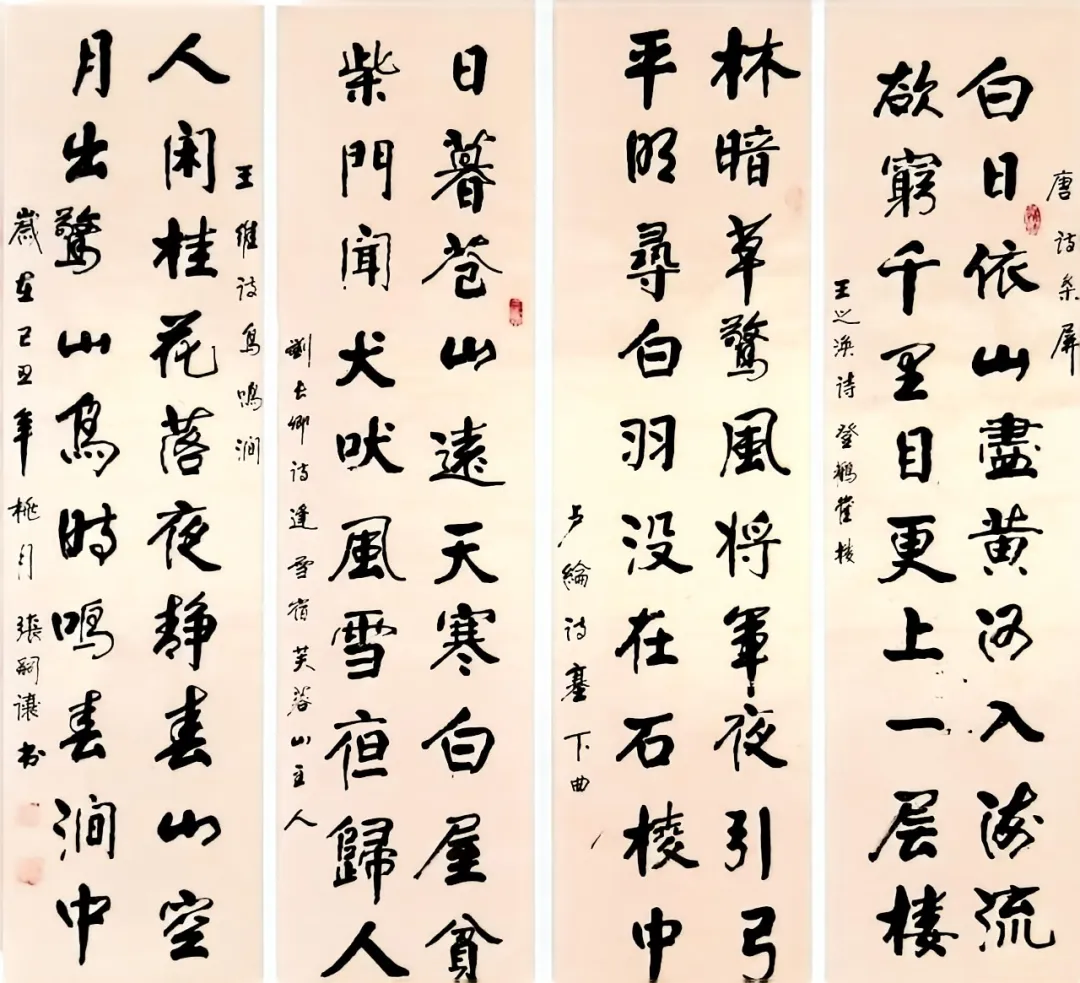 唐诗条屏
白日依山盡黄河入海流
欲窮千里目更上一层楼
王之涣诗登鹳雀楼
林暗草驚風将軍夜引弓
平明尋白羽没在石棱中
卢綸诗塞下曲
日暮苍山遠天寒白屋貧
柴門聞犬吠風雪亱歸人
劉长卿诗逢雪宿芙蓉山主人
王維诗鸟鳴涧
人闲桂花落夜静春山空
月出驚山鸟時鳴春涧中
歲在己丑年桃月張嗣书